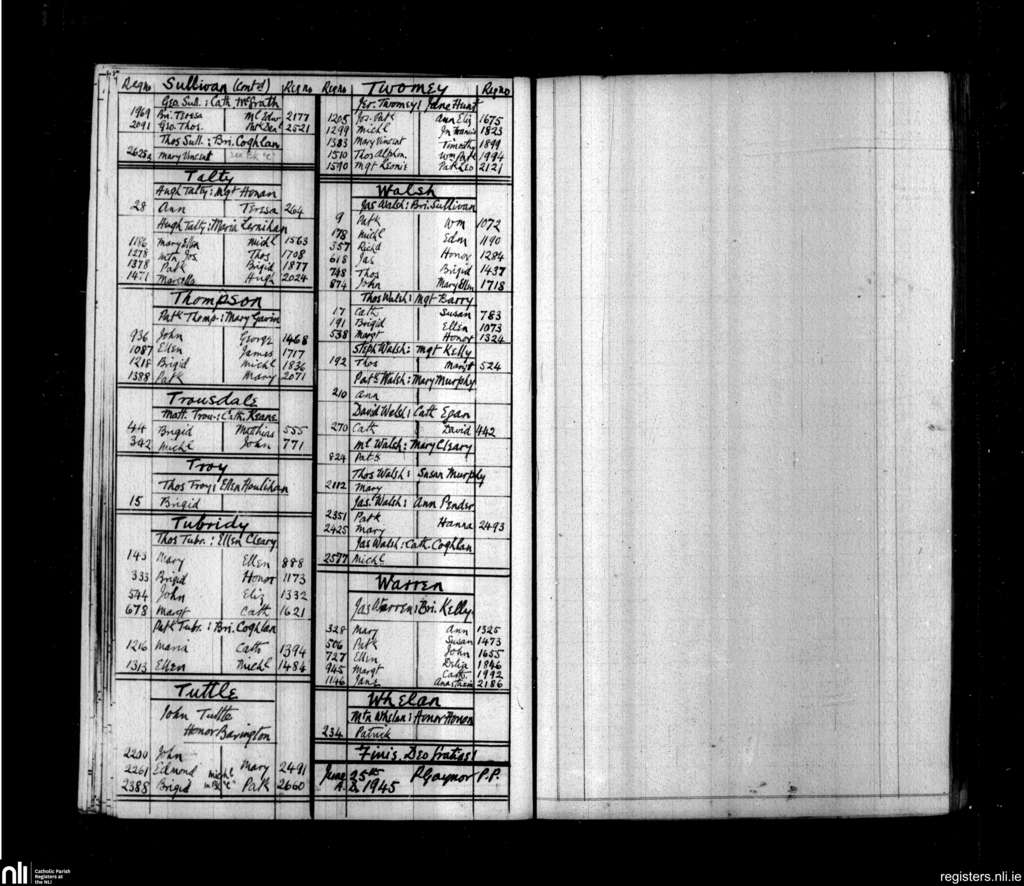 Reg no Sullivan (Cont'd) Reg no
Geo. Sull. : Cath. McGrath
1969 Bri. Teresa Ml. Edw. 2177
2091 Geo. Thos. Pat. Den. 2521
Thos Sull. : Bri. Coghlan
2625a Mary Vincent
Talty
Hugh Talty : Mgt Honan
28 Ann Teresa 264
Hugh Talty : Maria Lernihan
1186 Mary Ellen Michl 1563
1278 Mtn Jos. Thos 1708
1378 Patk Brigid 1877
1471 Marcella Hugh 2024
Thompson
Patk Thomp. : Mary Gavin
936 John George 1468
1087 Ellen James 1717
1218 Brigid Michl 1836
1388 Patk Mary 2071
Trousdale
Matt. Trou. : Cath. Keane
44 Brigid Mathias 555
342 Michl John 771
Troy
Thos Troy : Ellen Houlihan
15 Brigid
Tubridy
Thos Tubr. : Ellen Cleary
143 Mary Ellen 888
333 Brigid Honor 1173
544 John Eliz 1332
678 Margt Cath 1621
Patk Tubr. : Bri. Coghlan
1216 Maria Cath 1394
1313 Ellen Michl 1484
Tuttle
John Tuttle
Honor Barington
2200 John
2261 Edmond Michl Mary 2491
2388 Brigid in Bk "C" Patk 2660
Reg no Twomey Reg no
Jer. Twomey : Jane Hunt
1205 Jos. Patk Ann Eliz 1675
1299 Michl Jn Francis 1823
1383 Mary Vincent Timothy 1899
1510 Thos Alphon. Wm Patk 1994
1590 Mgt Leonie Patk Leo 2121
Walsh
Jas Walsh : Bri. Sullivan
9 Patk Wm 1072
178 Michl Edm 1190
357 Richd Honor 1284
618 Jas Brigid 1437
748 Thos Mary Ellen 1718
874 John
Thos Walsh : Mgt Barry
17 Cath Susan 783
191 Brigid Ellen 1073
538 Margt Honor 1324
Steph Walsh : Mgt Kelly
192 Thos Margt 524
Patk Walsh : Mary Murphy
210 Ann
David Walsh : Cath Egan
270 Cath David 442
Ml Walsh : Mary Cleary
824 Patk
Thos Walsh : Susan Murphy
2112 Mary
Jas. Walsh : Ann Pender
2351 Patk Hanna 2493
2425 Mary
Jas Walsh : Cath. Coghlan
2577 Michl
Warren
Jas Warren : Bri. Kelly
328 Mary Ann 1325
506 Patk Susan 1473
727 Ellen John 1655
945 Margt Delia 1846
1146 Jane Cath. 1992
Anastasia 2186
Whelan
Mtn Whelan : Honor Honan
234 Patrick
Finis. Deo Gratias!
June 25th P Gaynor P.P.
A.D. 1945
nli Catholic Parish
Registers at
the NLI
registers.nli.ie